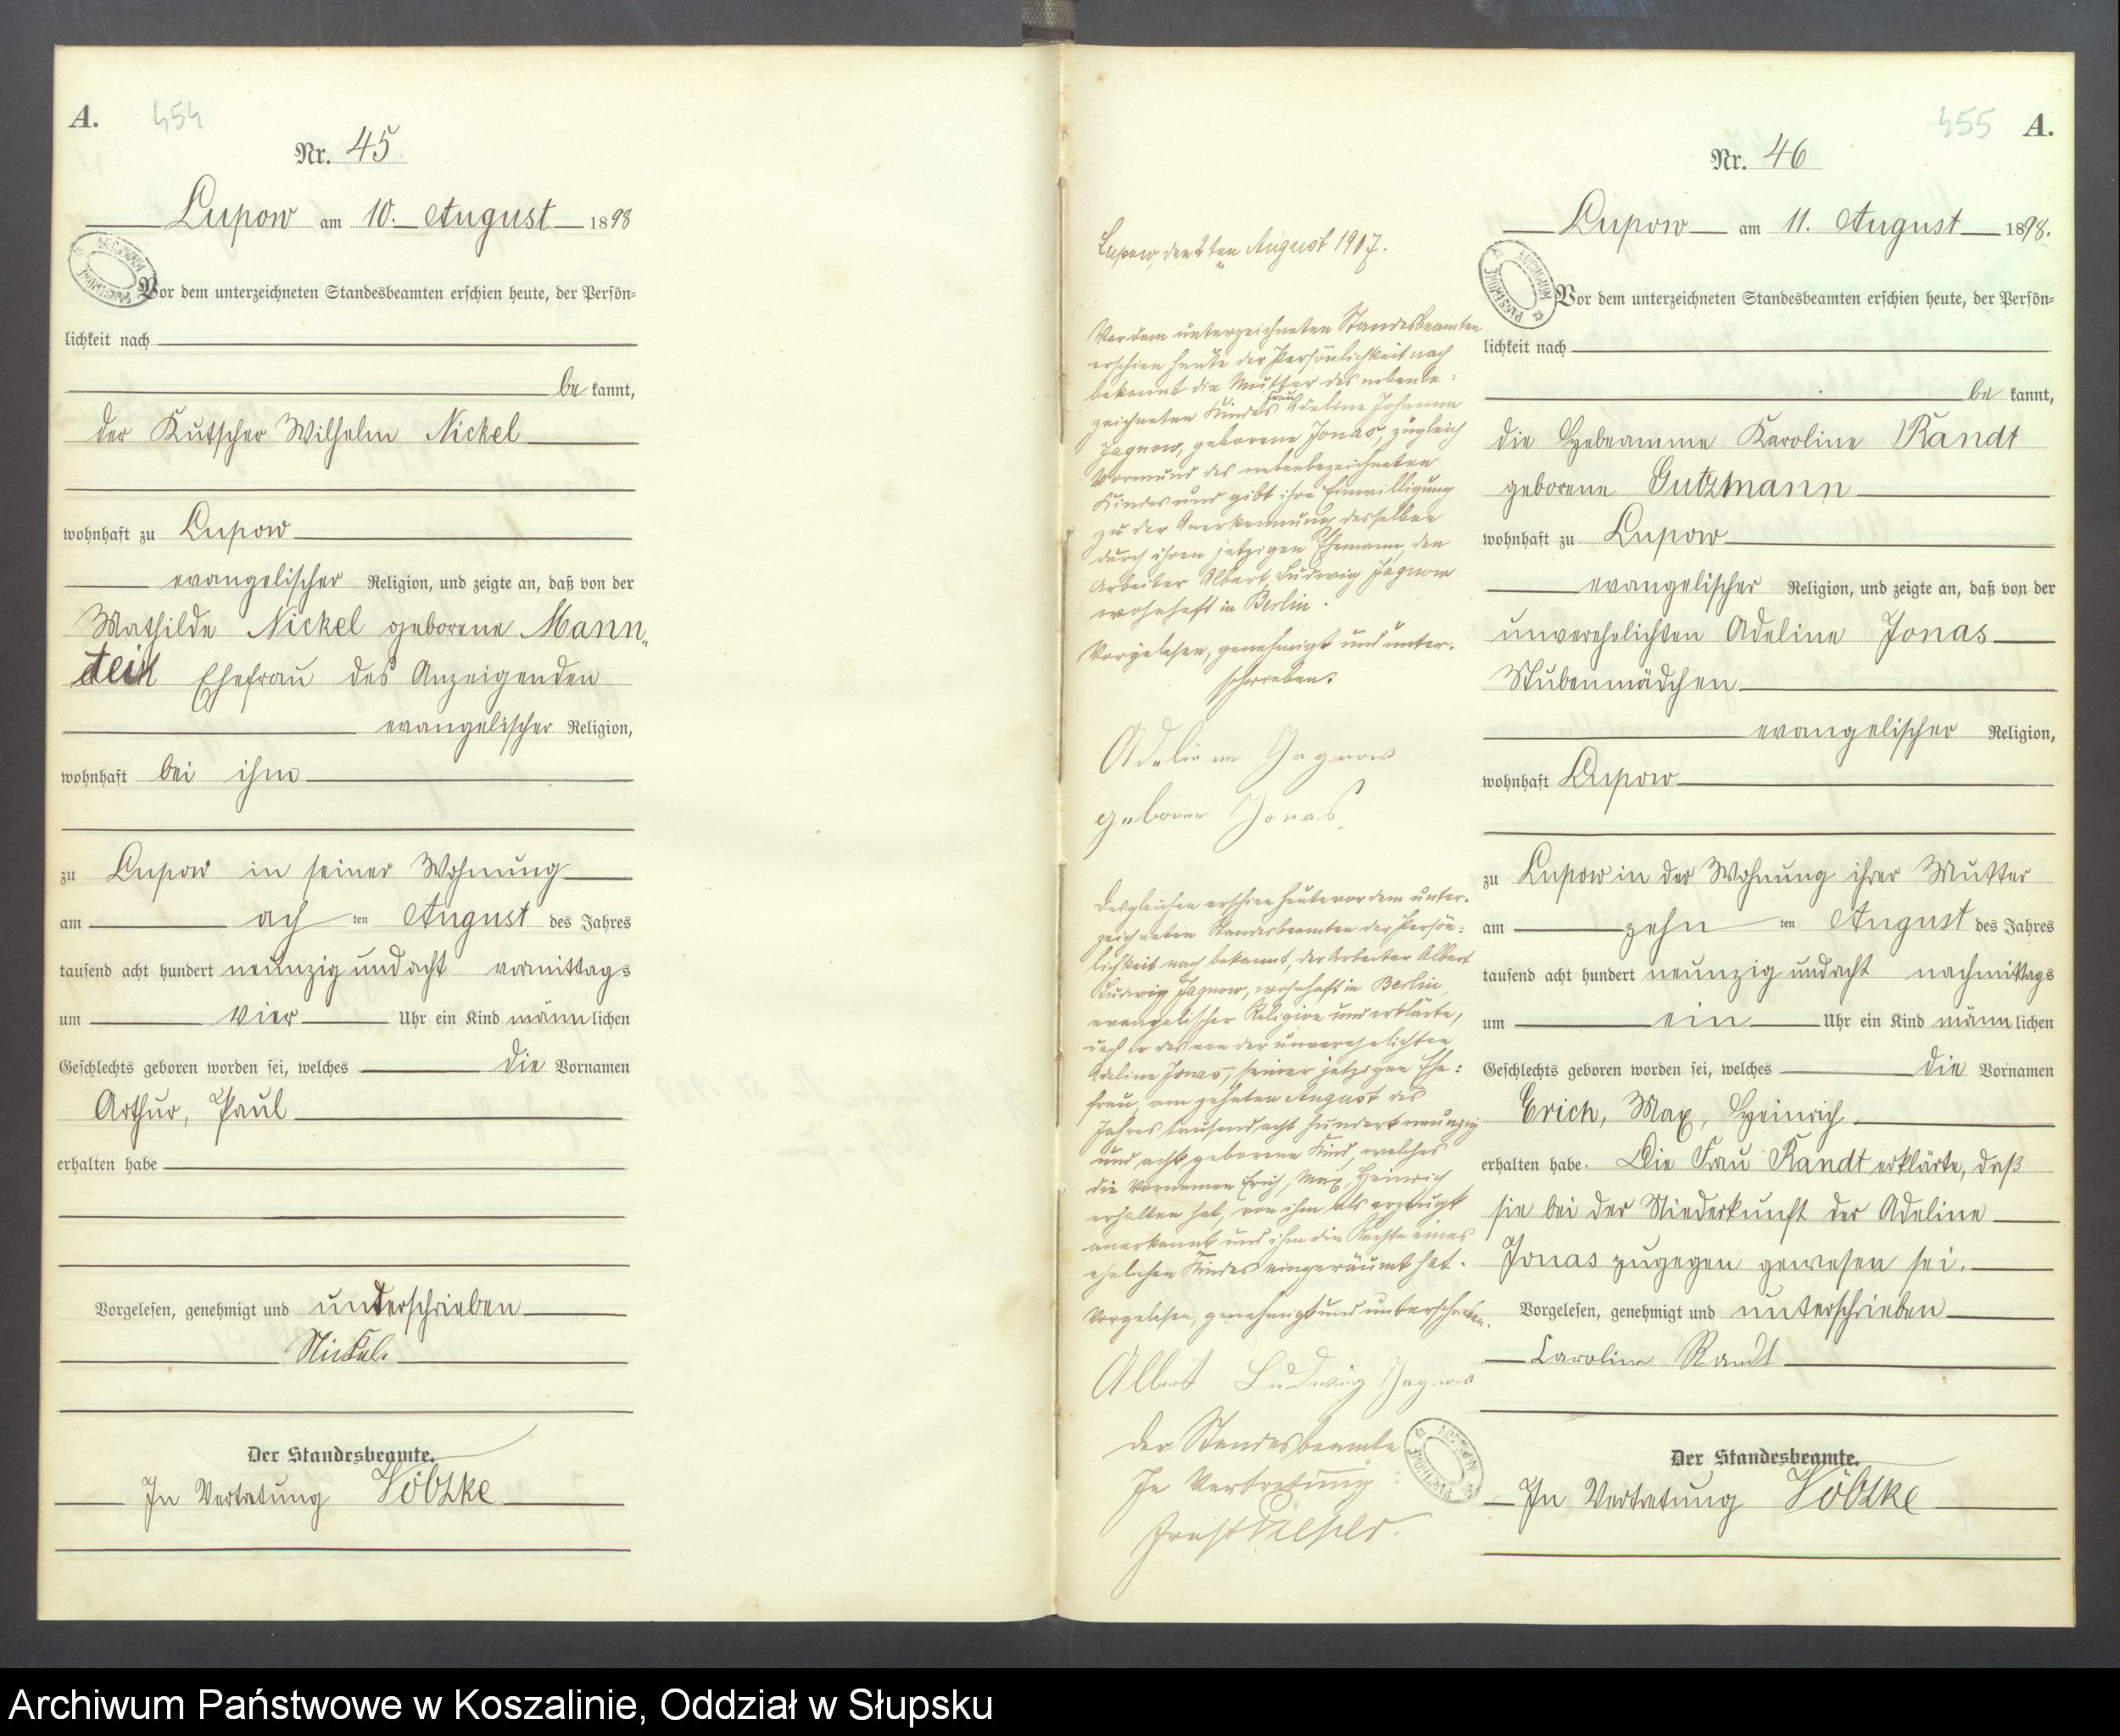 A.
454
Nr. 45
Lupow am 10. August 1898
Vor dem unterzeichneten Standesbeamten erschien heute, der Persön-
lichkeit nach
be kannt,
der Kutscher Wilhelm Nickel
wohnhaft zu Lupow
evangelischer Religion, und zeigte an, daß von der
Mathilde Nickel geborene Mann„
Ehefrau des Anzeigenden
evangelischer Religion,
wohnhaft bei ihm
zu Lupow in seiner Wohnung
am ach ten August des Jahres
tausend acht hundert neunzig und acht vormittags
um vier Uhr ein Kind männlichen
Geschlechts geboren worden sei, welches die Vornamen
Arthur, Paul
erhalten habe
Vorgelesen, genehmigt und unterschrieben
Nickel.
Der Standesbeamte.
In Vertretung
Lupow, den 2ten August 1907.
Vor dem unterzeichneten Standesbeamten
erschien heute der Persönlichkeit nach
bekannt die Mutter des nebenbe=
zeichneten Kindes Frau Adeline Johanna
Jagnow, geborene Jonas, zugleich
Vormund des nebenbezeichneten
Kindes und gibt ihre Einwilligung
zu der Anerkennung desselben
durch ihren jetzigen Ehemann, den
Arbeiter Albert Ludwig Jagnow
wohnhaft in Berlin.
Vorgelesen, genehmigt und unter-
schrieben.
Adeline Jagnow
geborne Jonas
Desgleichen erschien heute vor dem unter-
zeichneten Standesbeamten der Persön=
lichkeit nach bekannt, der Arbeiter Albert
Ludwig Jagnow, wohnhaft in Berlin,
evangelischer Religion und erklärte,
daß er das von der unverehelichten
Adeline Jonas, seiner jetzigen Ehe=
frau, am zehnten August des
Jahres tausend acht hundert neunzig
und acht geborene Kind, welches
die Vornamen Erich, Max, Heinrich
erhalten hat, von ihm als erzeugt
anerkannt und ihm die Rechte eines
ehelichen Kindes eingeräumt hat.
Vorgelesen, genehmigt und unterschrieben.
Albert Ludwig Jagnow
Der Standesbeamte
In Vertretung:
455
A.
Nr. 46
Lupow am 11. August 1898.
Vor dem unterzeichneten Standesbeamten erschien heute, der Persön-
lichkeit nach
be kannt,
die Hebeamme Karoline Randt
geborene Gutzmann
wohnhaft zu Lupow
evangelischer Religion, und zeigte an, daß von der
unverehelichten Adeline Jonas
Stubenmädchen
evangelischer Religion,
wohnhaft Lupow
zu Lupow in der Wohnung ihrer Mutter
am zehn ten August des Jahres
tausend acht hundert neunzig und acht nachmittags
um ein Uhr ein Kind männlichen
Geschlechts geboren worden sei, welches die Vornamen
Erich, Max, Heinrich
erhalten habe. Die Frau Randt erklärte, daß
sie bei der Niederkunft der Adeline
Jonas zugegen gewesen sei.
Vorgelesen, genehmigt und unterschrieben
Caroline Randt
Der Standesbeamte.
In Vertretung
Archiwum Państwowe w Koszalinie, Oddział w Słupsku